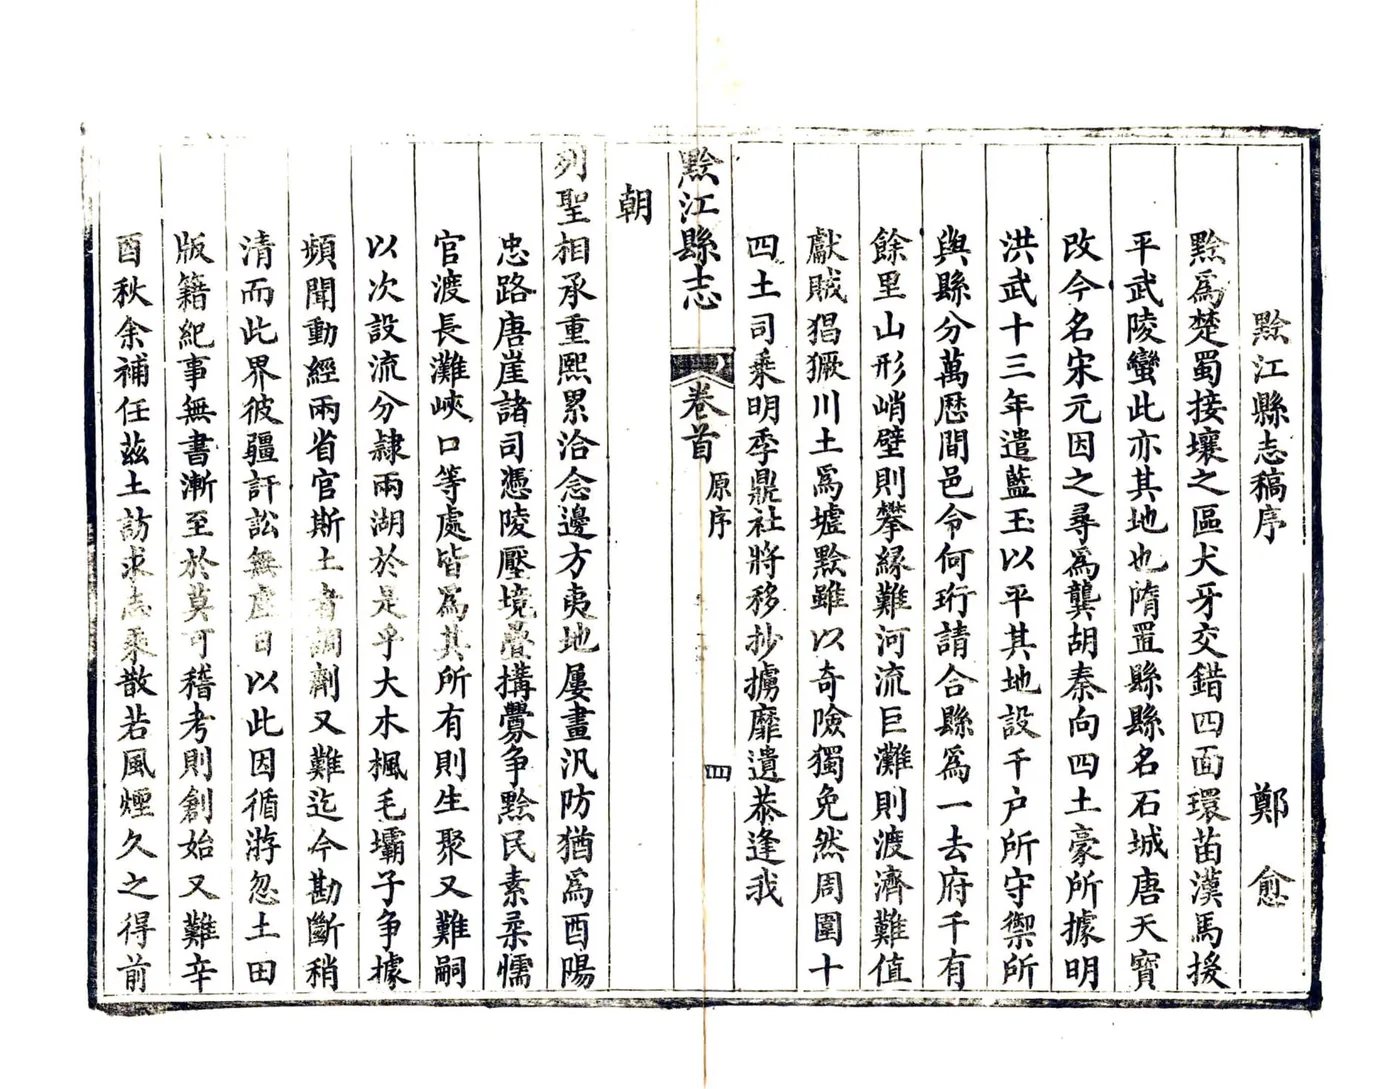 黔江縣志稿序
鄭愈
黔爲楚蜀接壤之區犬牙交錯四面環苗漢馬援
平武陵蠻此亦其地也隋置縣縣名石城唐天寶
改今名宋元因之尋爲龔胡秦向四土豪所據明
洪武十三年遣藍玉以平其地設千户所守禦所
與縣分萬厯間邑令何珩請合縣爲一去府千有
餘里山形峭壁則攀緣難河流巨灘則渡濟難值
獻賊猖獗川土爲墟黔雖以奇險獨免然周圍十
四土司乘明季鼎社將移抄擄靡遺恭逢我
黔江縣志
卷首
原序
四
朝
列聖相承重熙累洽念邊方夷地屢畫汛防猶爲酉陽
忠路唐崖諸司憑陵壓境疊搆釁争黔民素柔懦
官渡長灘峽口等處皆爲其所有則生聚又難嗣
以次設流分隸兩湖於是乎大木楓毛壩子争據
頻聞動經兩省官斯土者調劑又難迄今勘斷稍
清而此界彼疆訐訟無虛日以此因循游忽土田
版籍紀事無書漸至於莫可稽考則創始又難辛
酉秋余補任茲土訪求志乘散若風煙久之得前